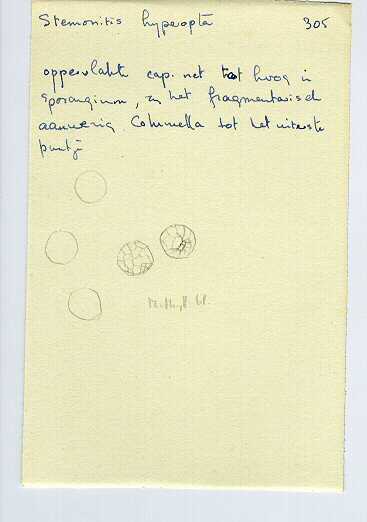 Stemonitis hyperopta 305
oppervlakte cap. net tot hoog in
sporangium, zn het fragmentarisch
aanwezig. Columella tot het uiterste
puntje